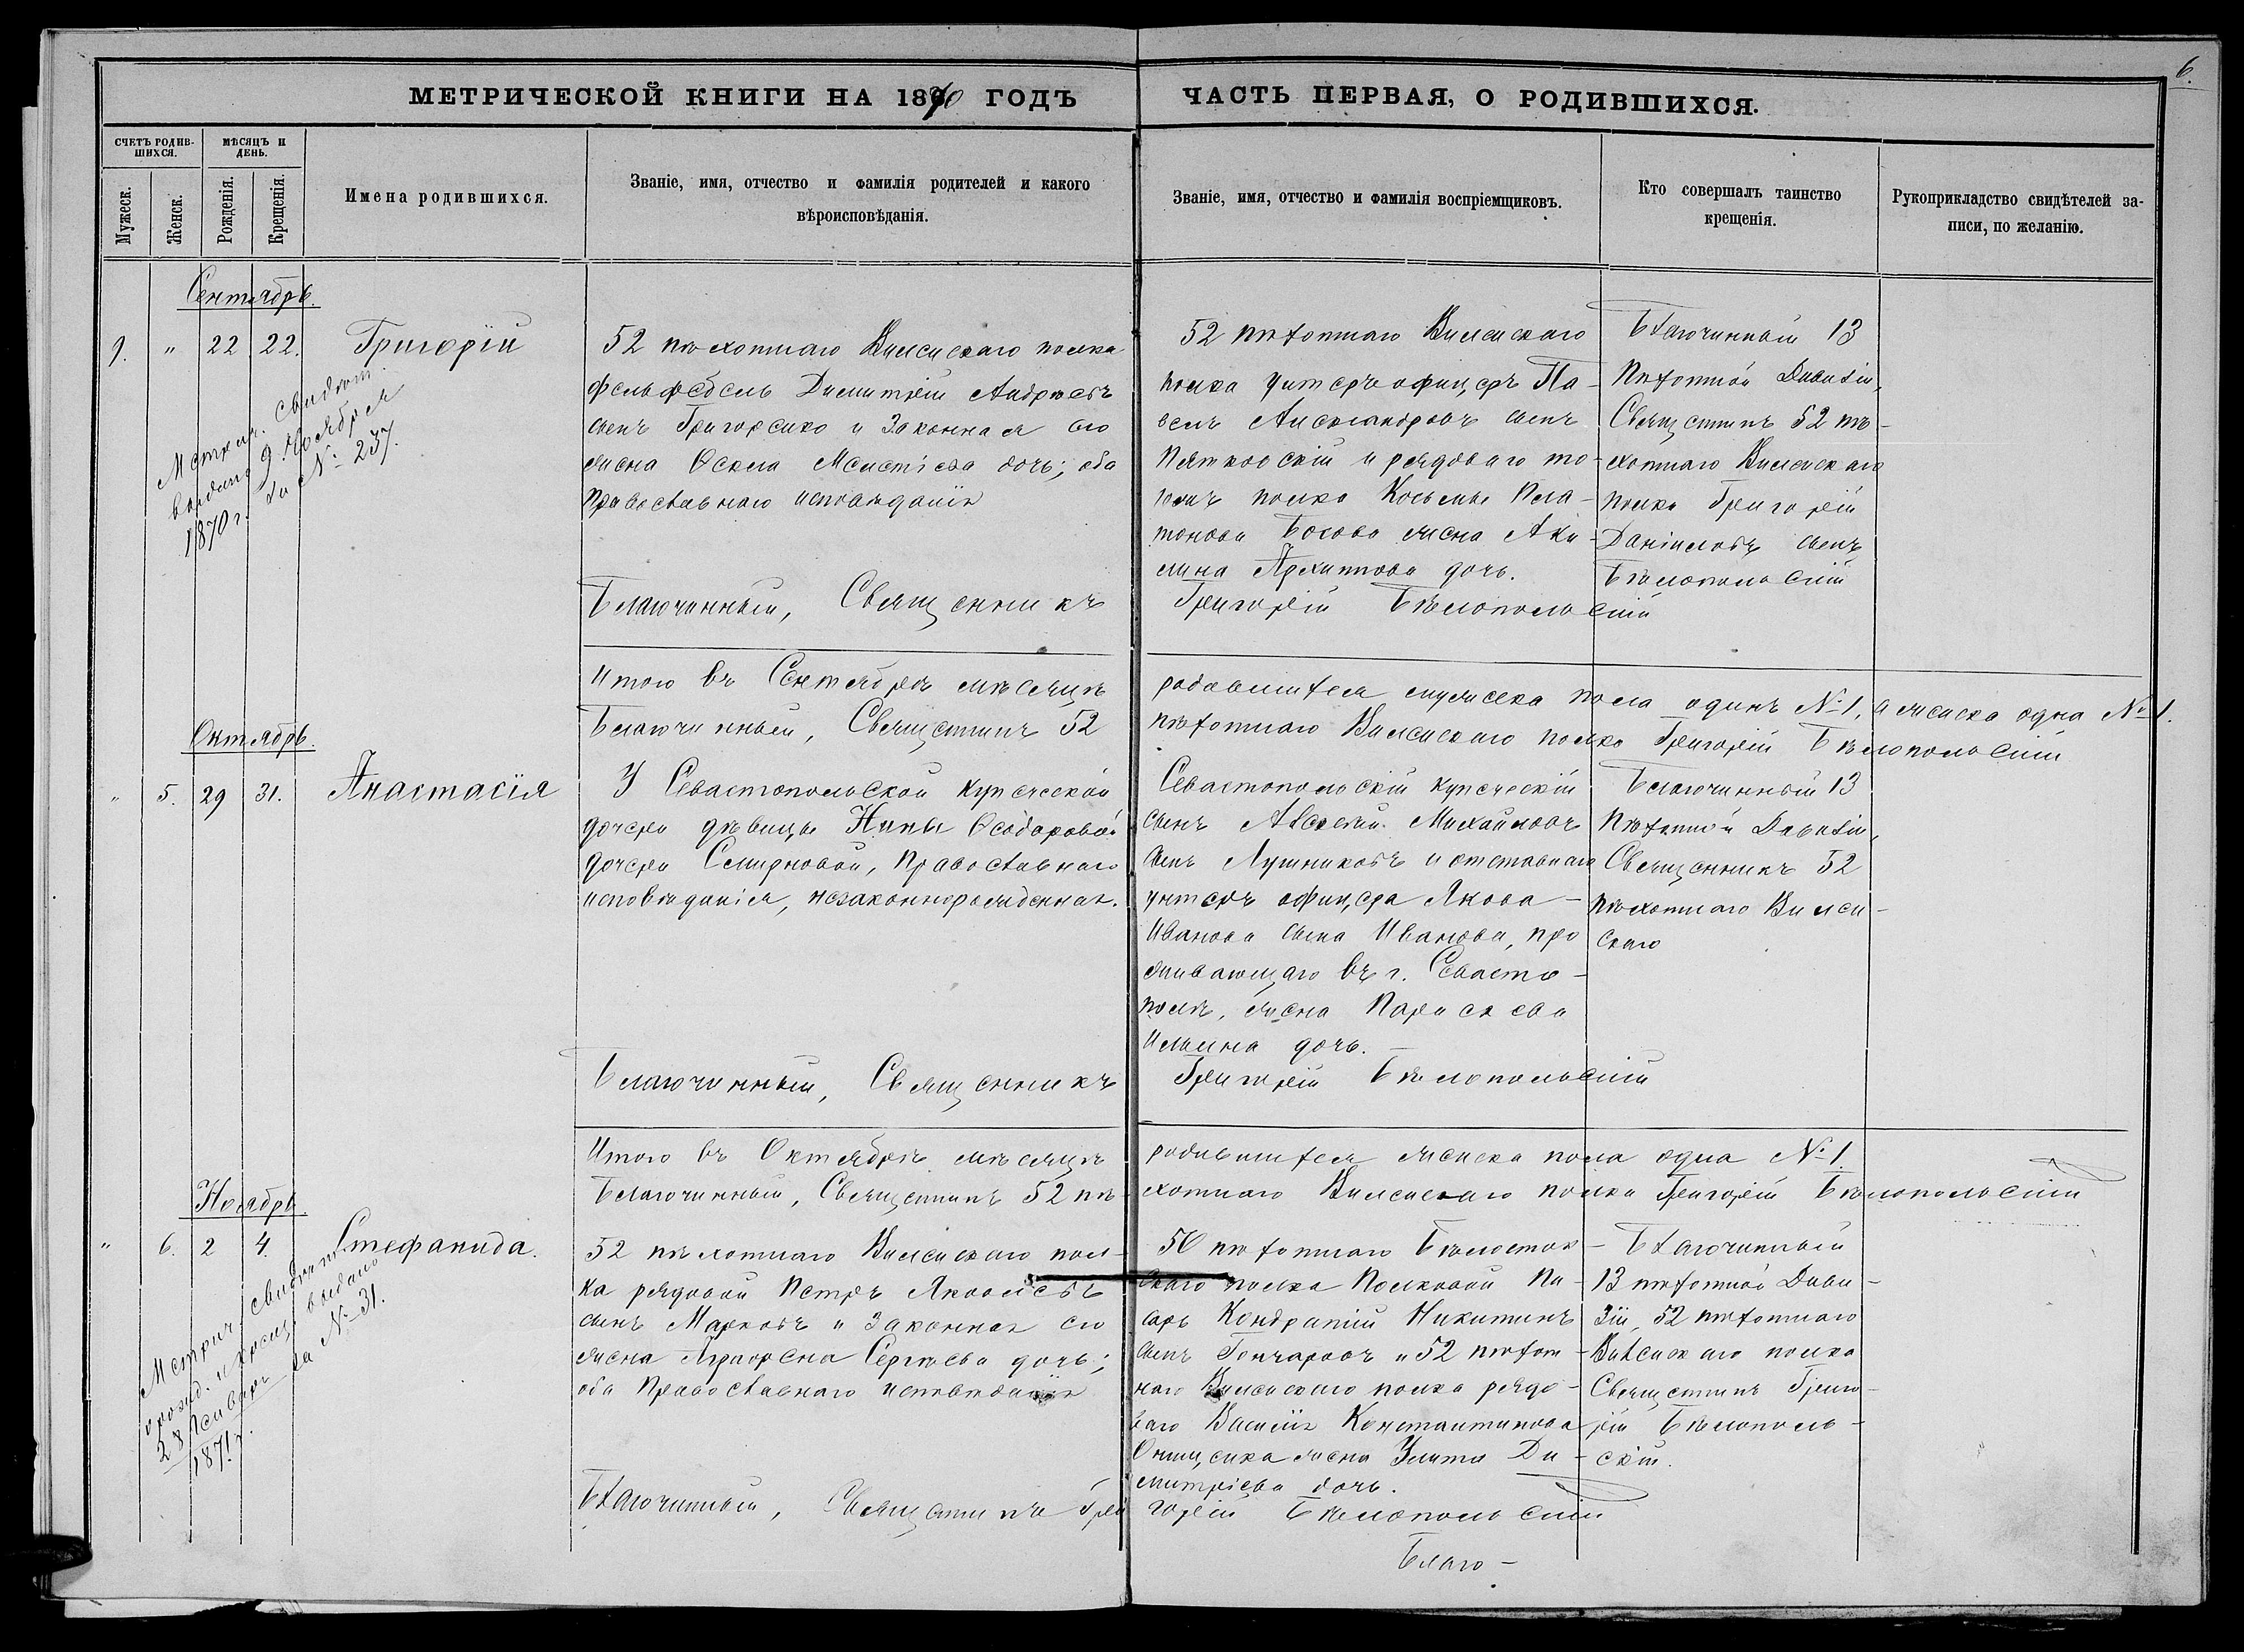 6.
МЕТРИЧЕСКОЙ КНИГИ НА 1870 ГОДЪ
ЧАСТЬ ПЕРВАЯ, О РОДИВШИХСЯ.
СЧЕТЪ РОДИВ-
ШИХСЯ.
МѢСЯЦЪ И
ДЕНЬ.
Мужеск.
Женск.
Рожденія.
Крещенія.
Имена родившихся.
Званіе, имя, отчество и фамилія родителей и какого
вѣроисповѣданія.
Званіе, имя, отчество и фамилія воспріемщиковъ.
Кто совершалъ таинство
крещенія.
Рукоприкладство свидѣтелей за-
писи, по желанію.
Сентябрь.
" 22 22.
Григорій
Метрич. свидѣт.
выдано 9 Ноября
1870 г. за № 237.
52 пѣхотнаго Виленскаго полка
фельдфебель Димитрій Андреевъ
сынъ Григоренко и законная его
жена Ѳекла Мелетіева дочь; оба
Православнаго исповѣданія
Благочинный, Священникъ
52 пѣхотнаго Виленскаго
полка унтеръ офицеръ Па-
велъ Александровъ сынъ
Пятковскій и рядоваго то-
гожъ полка Космы Пла-
тонова Босова жена Аки-
лина Архиппова дочь.
Григорій Бѣлопольскій
Благочинный 13
Пѣхотной Дивизіи,
Священникъ 52 пѣ-
хотнаго Виленскаго
полка Григорій
Даніиловъ сынъ
Бѣлопольскій
Итого въ Сентябрѣ мѣсяцѣ
родившихся мужеска пола одинъ № 1, а женска одна № 1.
Благочинный, Священникъ 52
пѣхотнаго Виленскаго полка Григорій Бѣлопольскій
Октябрь.
" 5. 29 31.
Анастасія
У Севастопольской купеческой
дочери дѣвицы Нины Ѳеодоровой
дочери Смирновой, Православнаго
исповѣданія, незаконнорожденная.
Благочинный, Священникъ
Севастопольскій купеческій
сынъ Алексѣй Михайловъ
сынъ Лушниковъ и отставнаго
унтеръ офицера Якова
Иванова сына Иванова, про
живающаго въ г. Севасто-
полѣ, жена Параскева
Ильина дочь.
Григорій Бѣлопольскій
Благочинный 13
Пѣхотной Дивизіи,
Священникъ 52
пѣхотнаго Вилен-
скаго
Итого въ Октябрѣ мѣсяцѣ
родившихся женска пола одна № 1.
Благочинный, Священникъ 52 пѣ-
хотнаго Виленскаго полка Григорій Бѣлопольскій
Ноябрь
" 6. 2 4.
Стефанида.
Метрич. свидѣт.
о рожд. и крещ. выдано
28 Январь за № 31.
1871 г.
52 пѣхотнаго Виленскаго пол-
ка рядовой Петръ Яковлевъ
сынъ Марковъ и законная его
жена Сергѣева дочь;
оба Православнаго исповѣданія
Благочинный, Священникъ Гри
50 пѣхотнаго Бѣлосток-
скаго полка Полковой Пи-
сарь Кондратій Никитинъ
сынъ Гончаровъ и 52 пѣхот-
наго Виленскаго полка рядо-
ваго Василія Константинова
Онищенка жена Улита Ди-
митріева дочь.
горій Бѣлопольскій
Благочинный
13 пѣхотной Диви-
зіи, 52 пѣхотнаго
Виленскаго полка
Священникъ Григо-
рій Бѣлополь-
скій.
Благо-